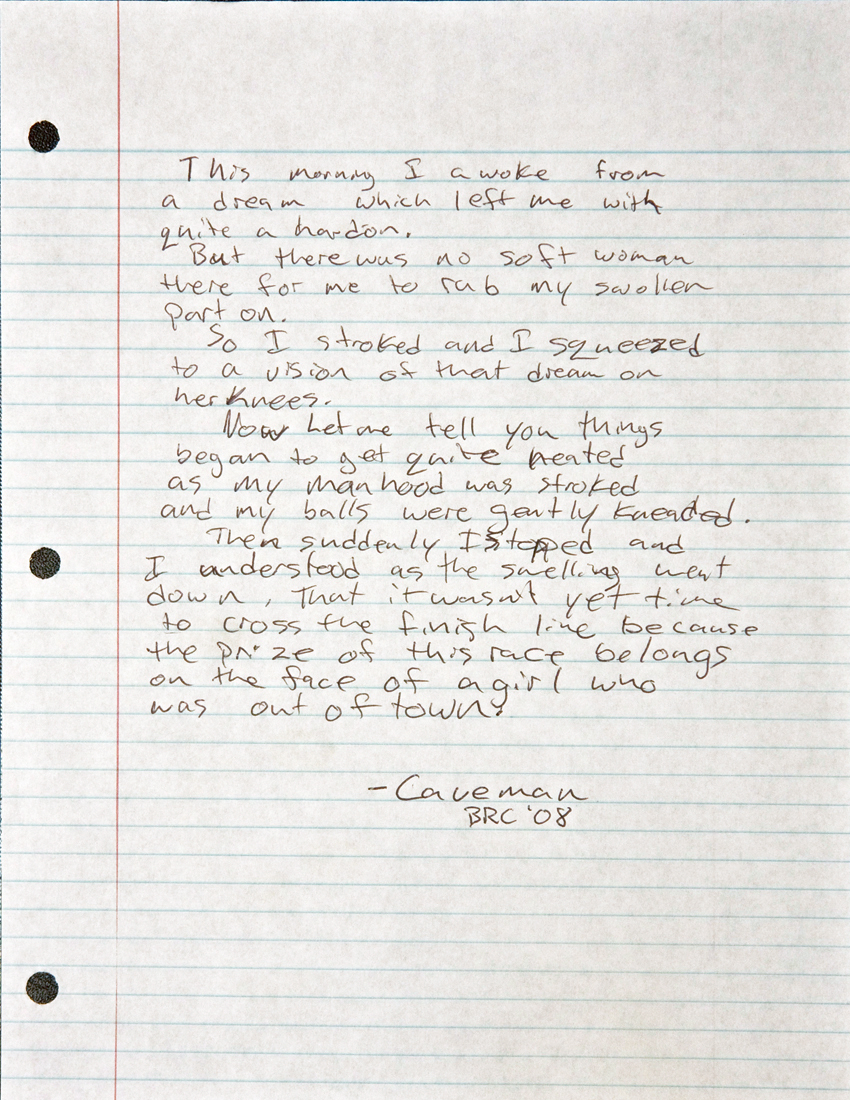 This morning I awoke from
a dream which left me with
quite a hardon.
But there was no soft woman
there for me to rub my swollen
part on.
So I stroked and I squeezed
to a vision of that dream on
her knees.
Now let me tell you things
began to get quite heated
as my manhood was stroked
and my balls were gently kneaded.
Then suddenly I stopped and
I understood as the swelling went
down, that it wasn't yet time
to cross the finish line because
the prize of this race belongs
on the face of a girl who
was out of town.
-Caveman
BRC '08